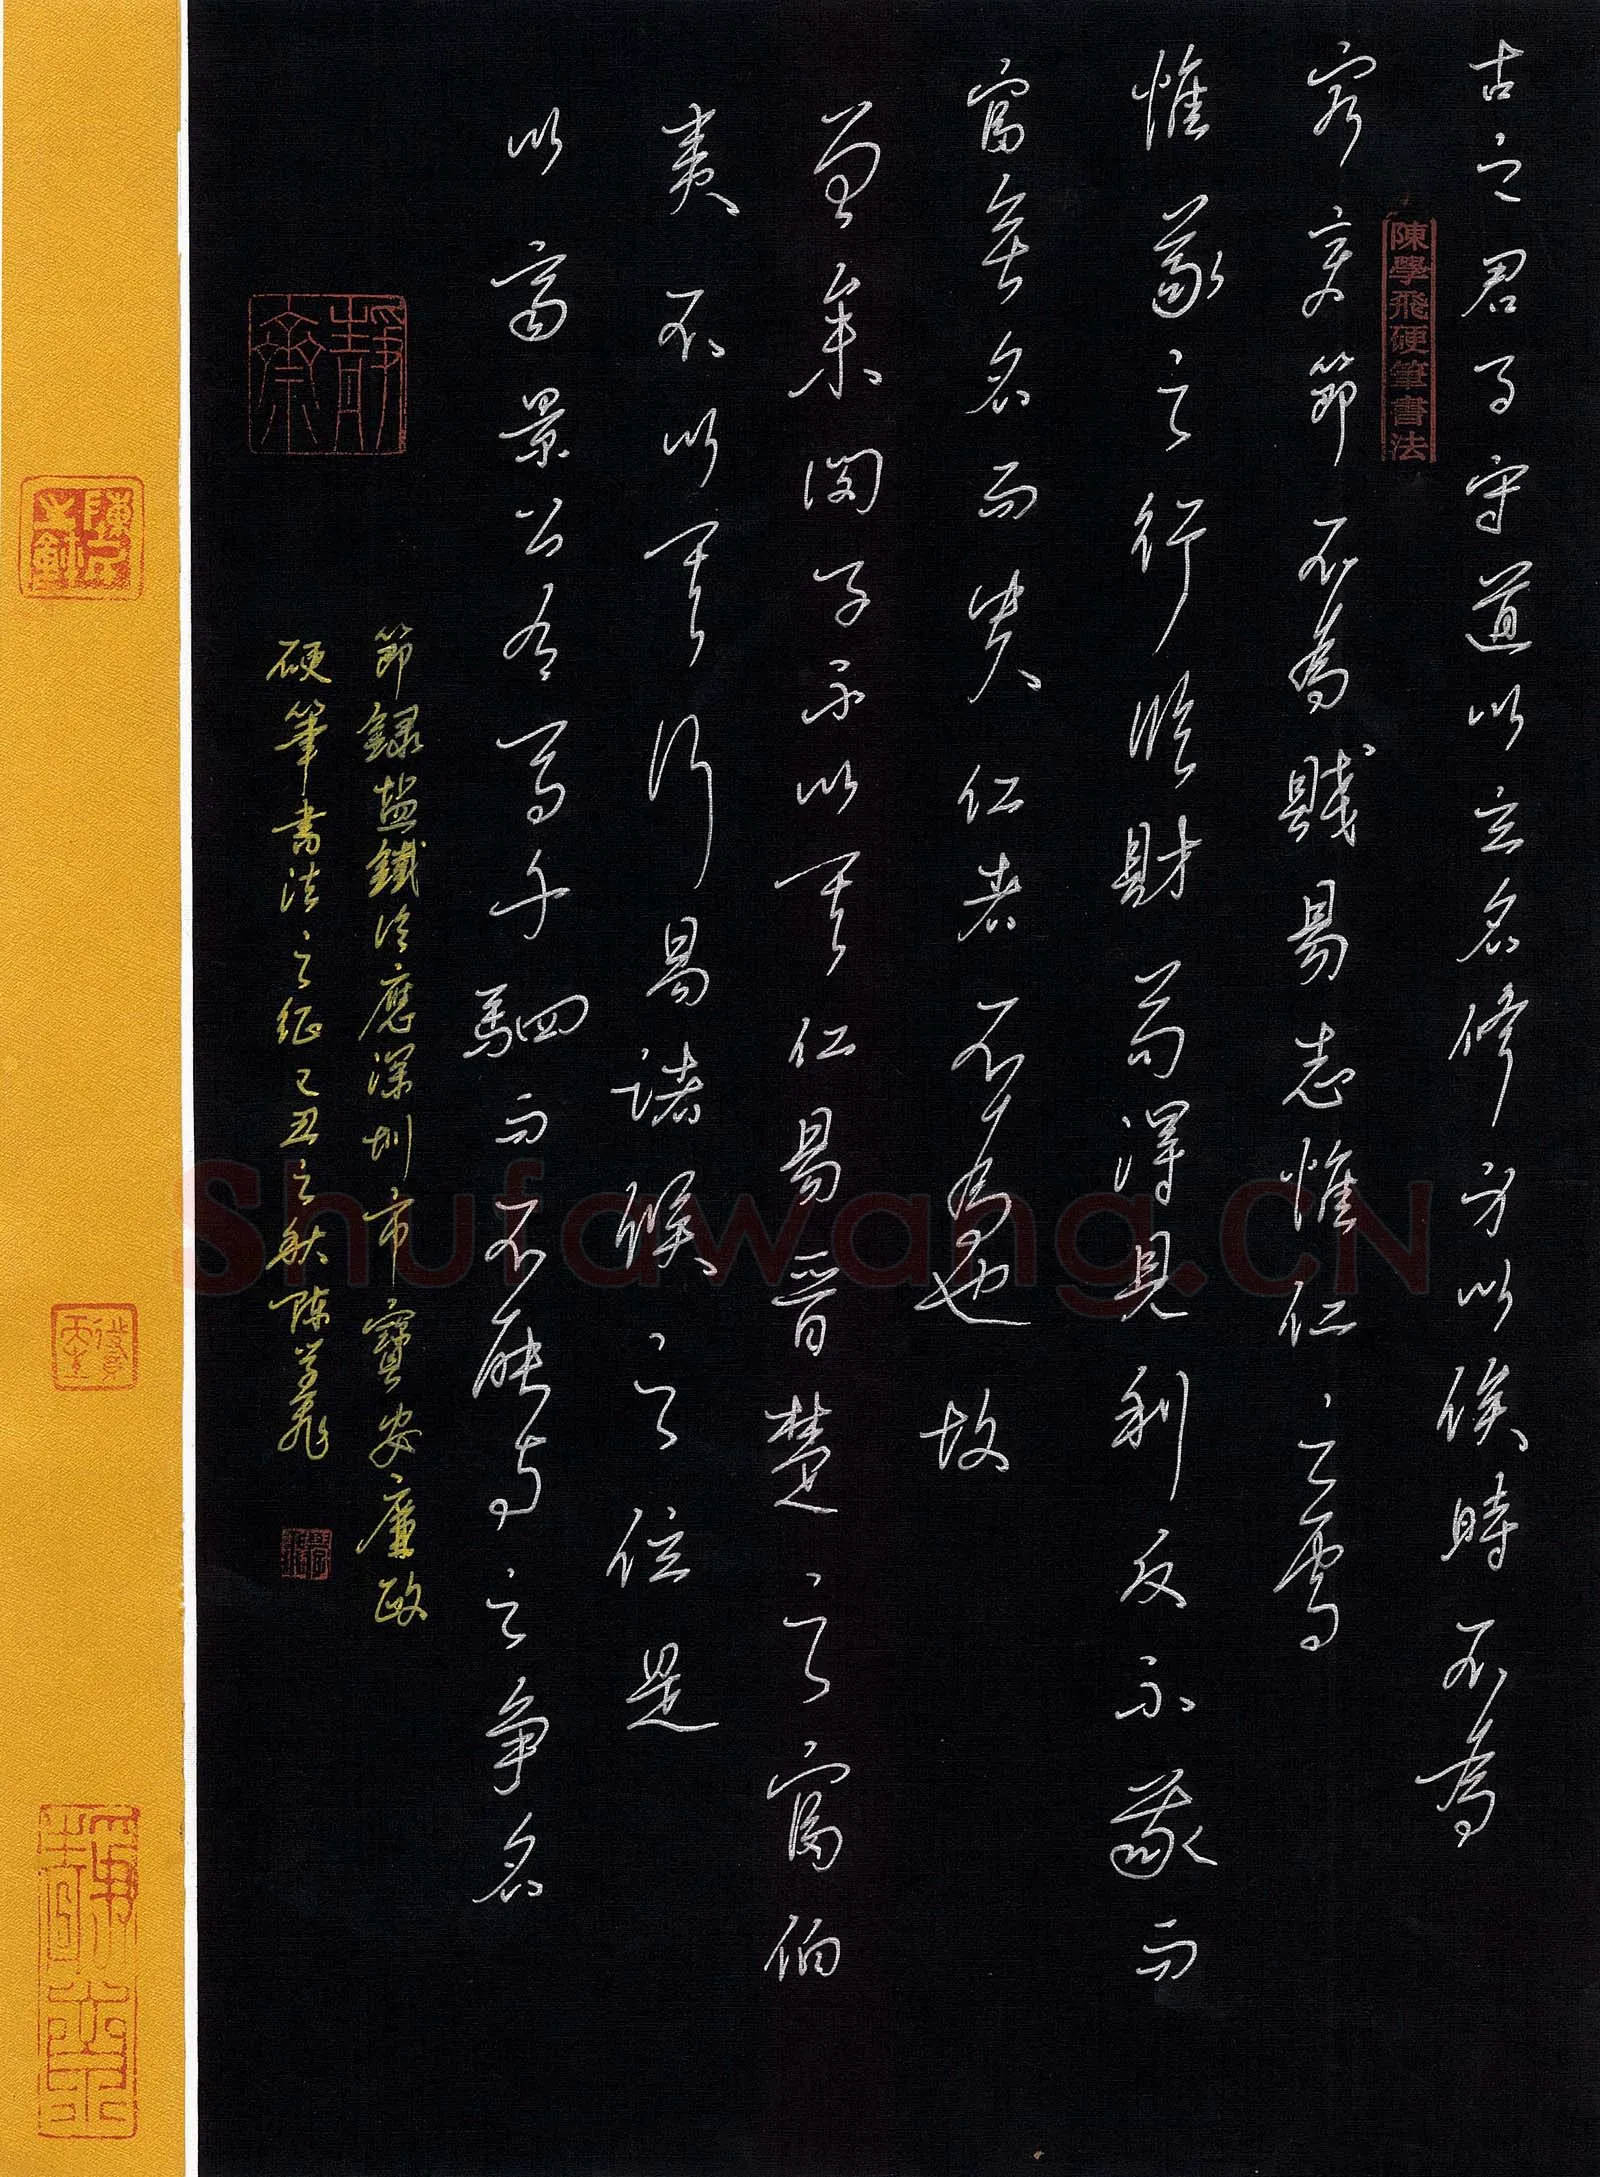 古之君子守道以立名修身以俟時不為
穷变節不為賤易志惟仁之處
惟義之行临財苟得見利反不義而
富無名而貴仁者不為也故
曾參闵子不以其仁易晉楚之富伯
夷不以其行易诸侯之位是
以齊景公有馬千駟而不能與之爭名
節錄盐鐵论應深圳市寶安廉政
硬筆書法之征己丑之秋陈学飛
陳學飛硬筆書法
靜齋
Shufawang.CN